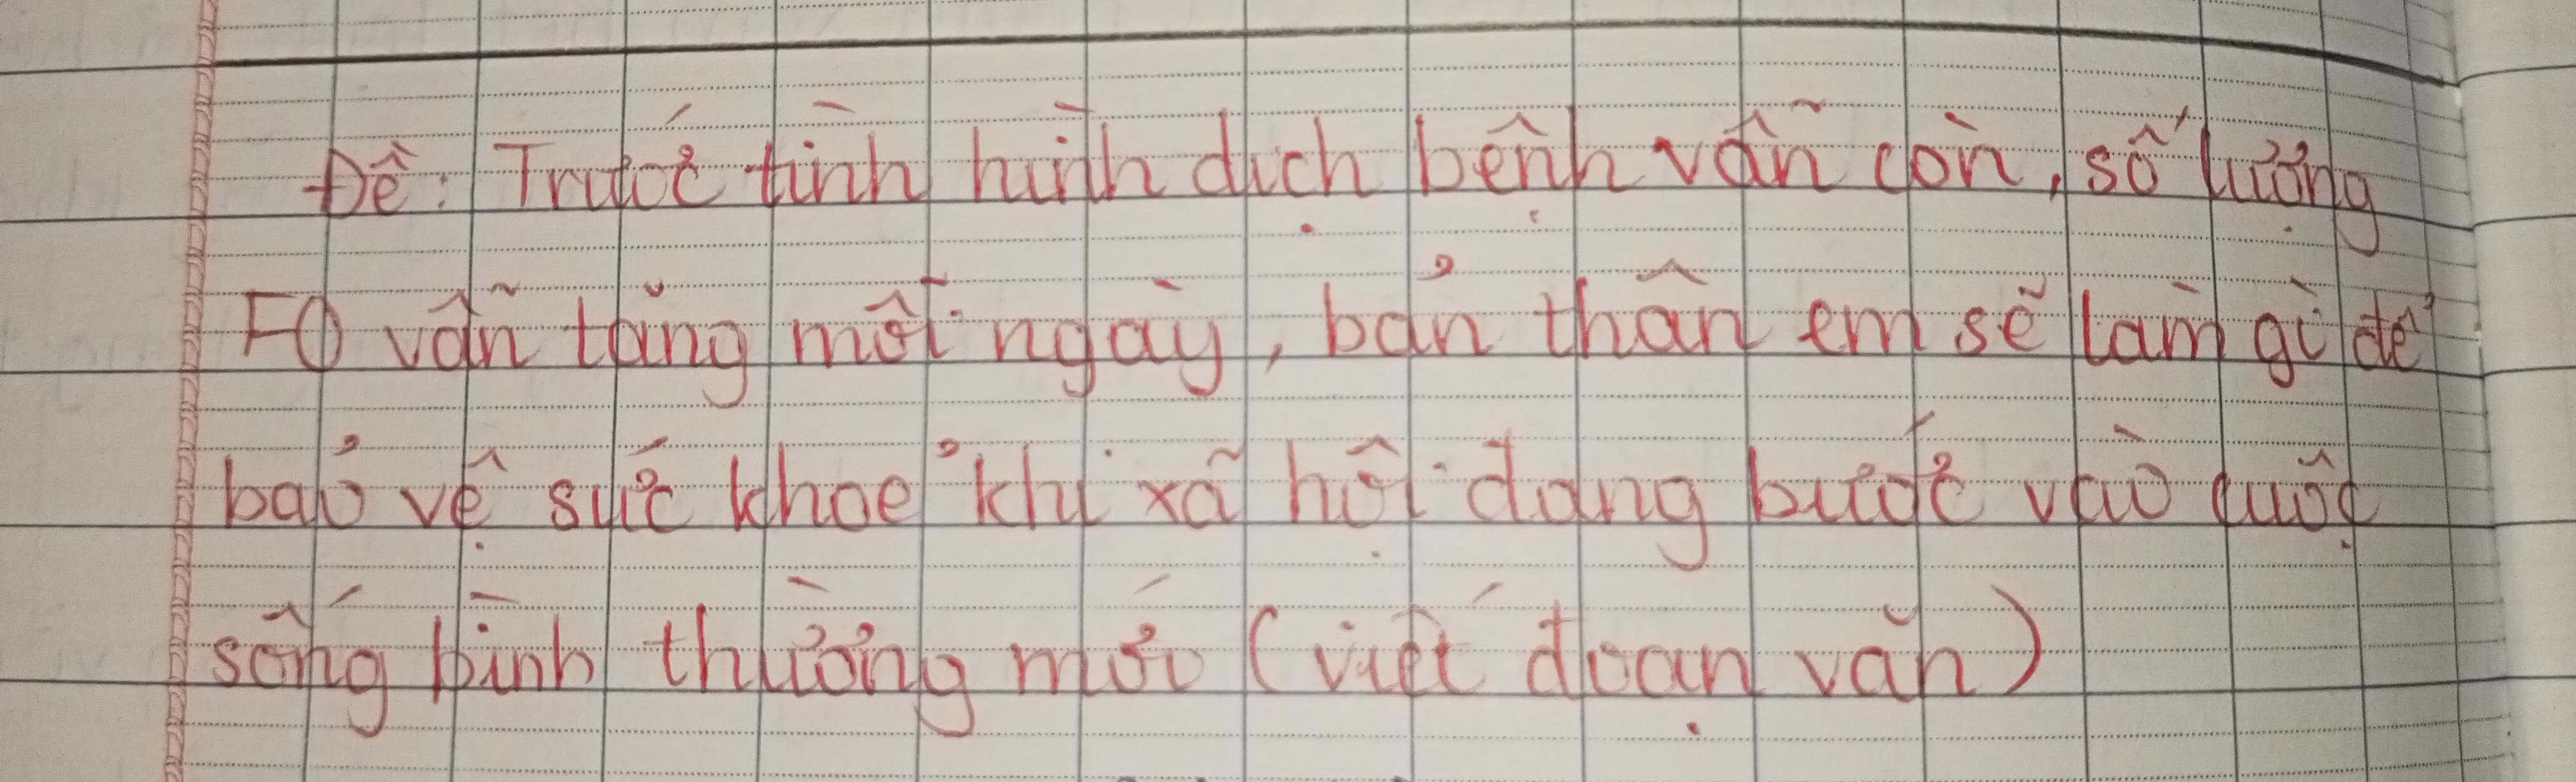 Đề: Trước tình hình dịch bệnh vẫn còn, số lượng
F0 vẫn tăng mỗi ngày, bản thân em sẽ làm gì để
bảo vệ sức khoẻ khi xã hội đang bước vào cuộc
sống bình thường mới (viết đoạn văn)